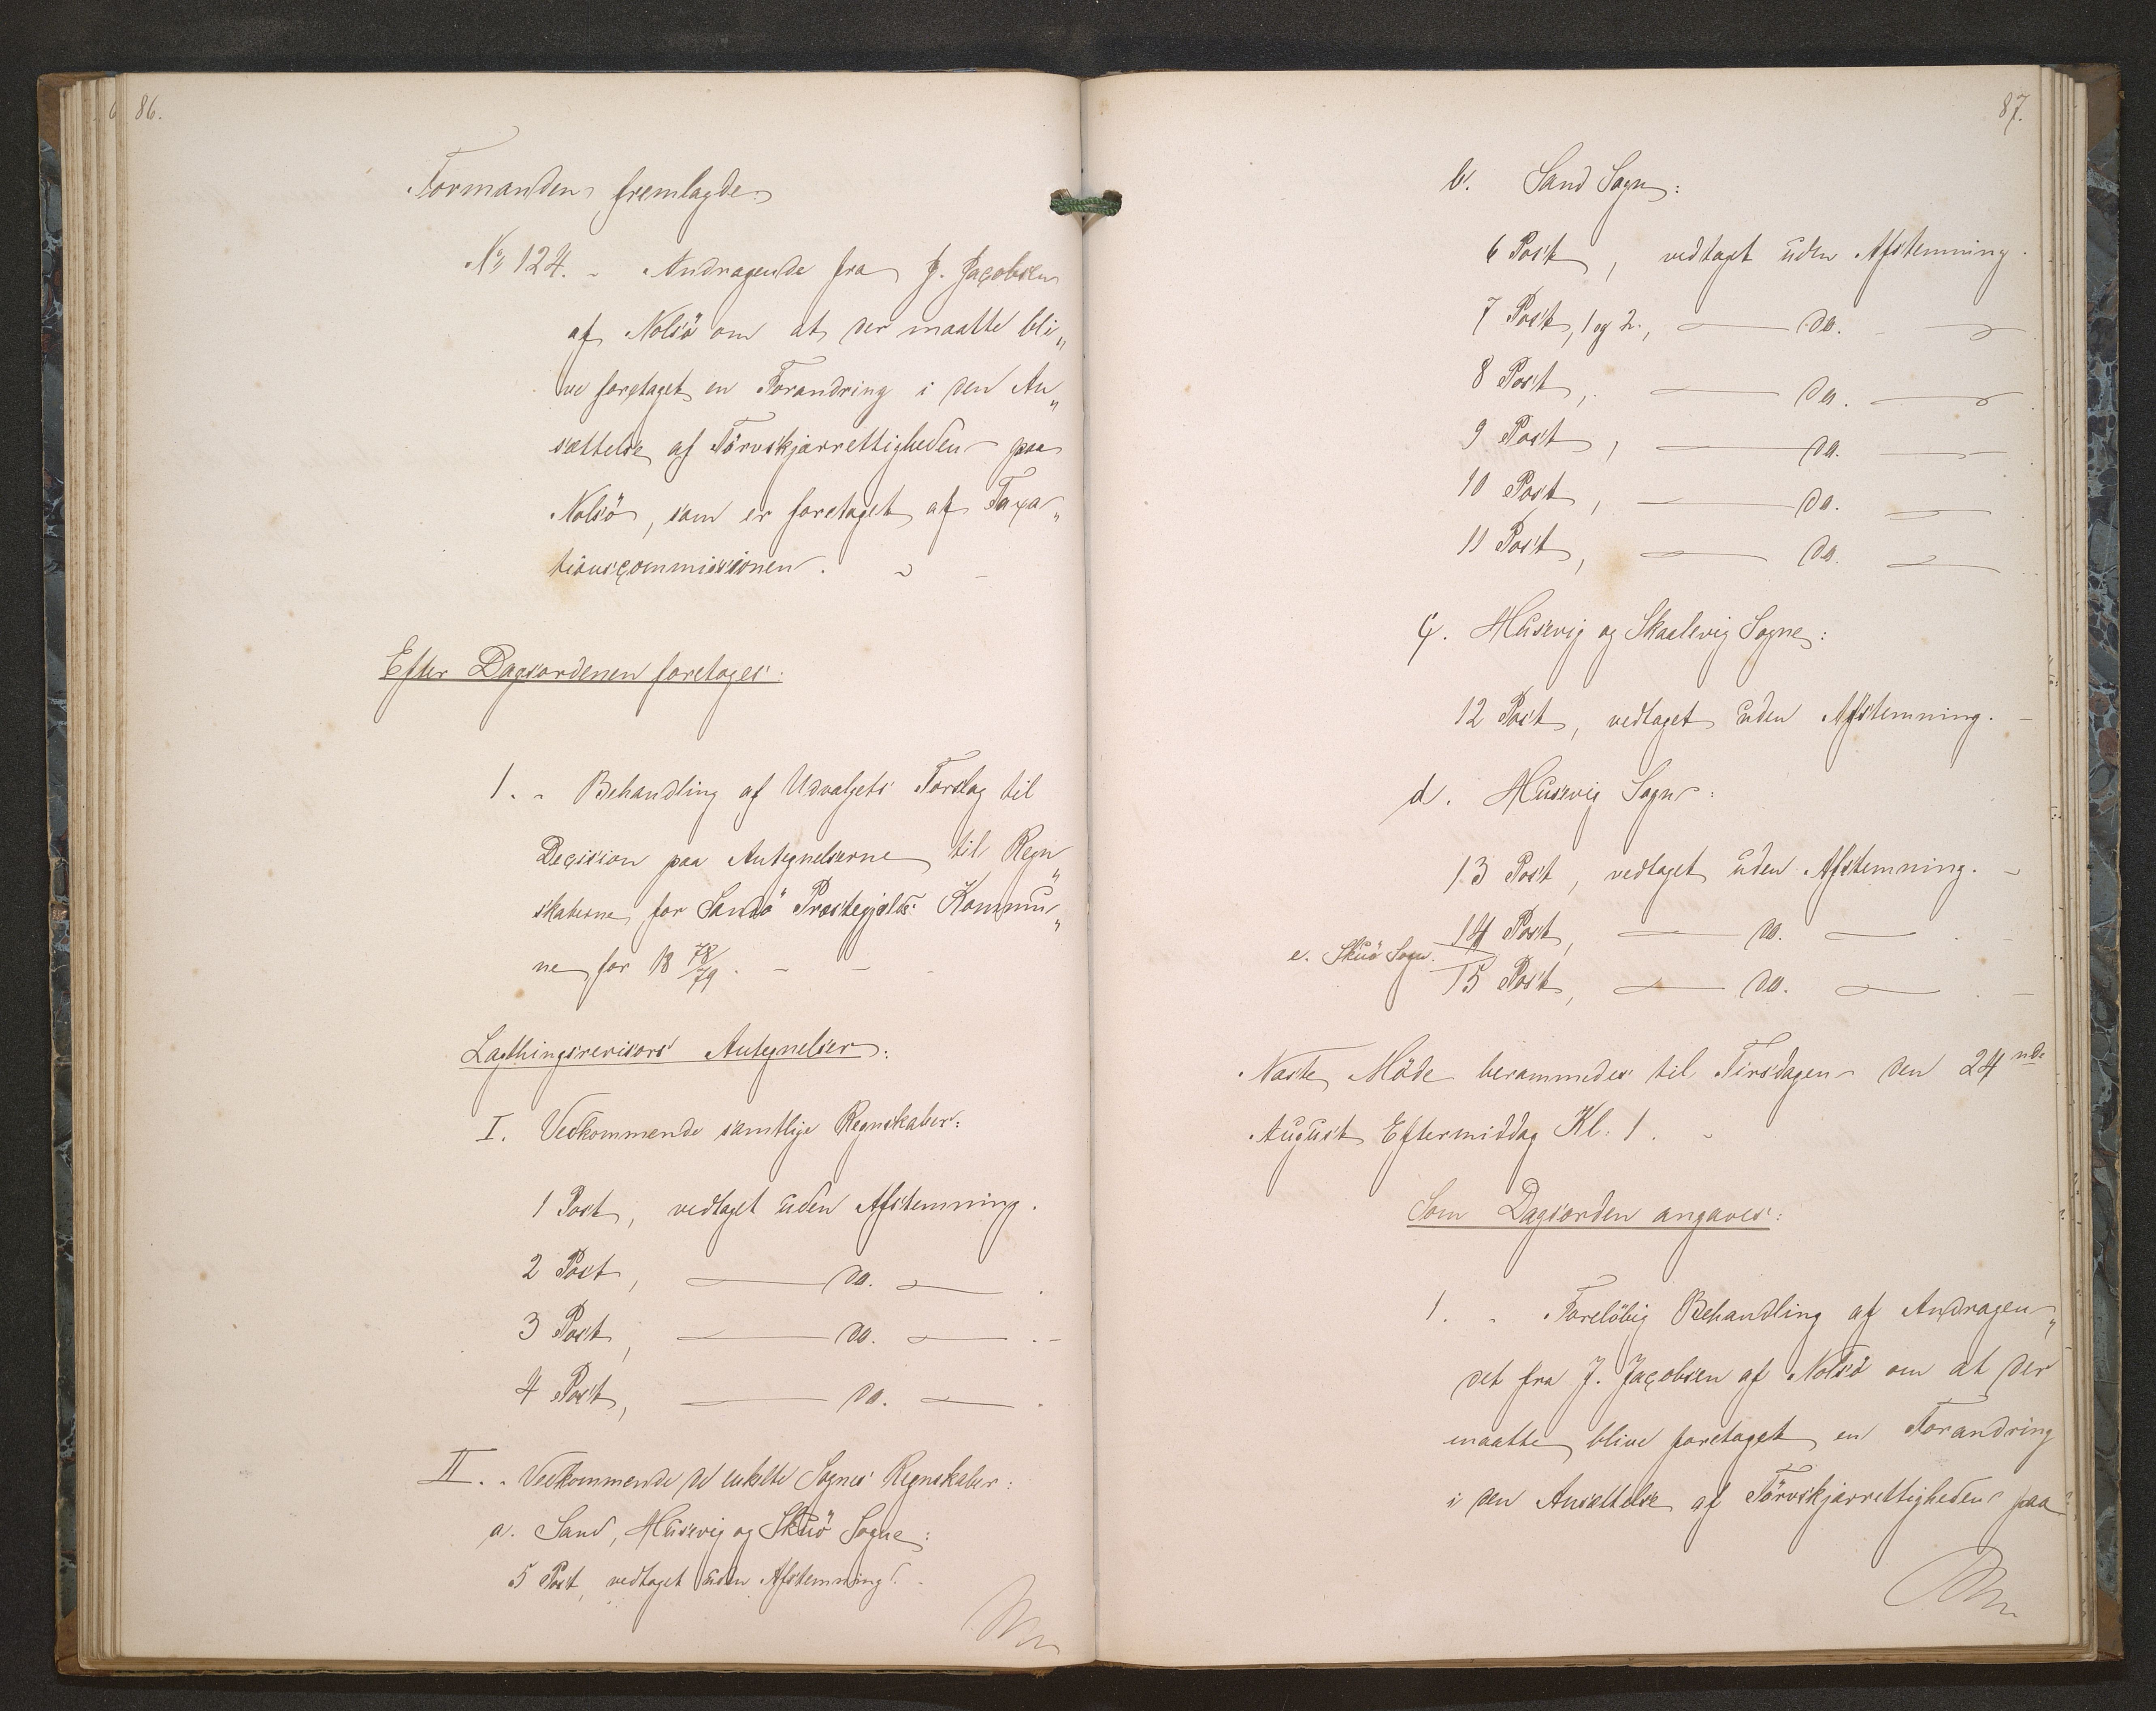 86.
Formanden fremlagde
No 124. - Andragende fra J. Jacobsen
af Nolsö om at der maatte bli„
ve foretaget en Forandring i den An„
sættelse af Törvskjærrettigheden paa
Nolsö, som er foretaget af Taxa„
tionscommissionen. - -
Efter Dagsordenen foretoges:
1. - Behandling af Udvalgets Forslag til
Decision paa Antegnelserne til Regn„
skaberne for Sandö Præstegjælds Kommu„
ne for 18 78/79. - - -
Lagthingsrevisors Antegnelser:
I. Vedkommende samtlige Regnskaber:
1 Post, vedtaget uden Afstemning.
2 Post, — do. — .
3 Post, — do. — . -
4 Post, — do. — .
II. - Vedkommende de enkelte Sognes Regnskaber:
a. Sand, Húsevig og Skuö Sogne:
5 Post, vedtaget uden Afstemning. -
87.
b. Sand Sogn:
6 Post, vedtaget uden Afstemning.
7 Post, 1 og 2., — do. - —
8 Post, — do. —
9 Post, — do. —
10 Post, — do. —
11 Post, — do. —
c. Húsevig og Skaalevig Sogne:
12 Post, vedtaget uden Afstemning. -
d. Húsevig Sogn:
13 Post, vedtaget uden Afstemning. -
14 Post, — do. — . -
e. Skuö Sogn.
15 Post, — do. — . -
Næste Möde berammedes til Tirsdagen den 24nde
August Eftermiddag Kl. 1. -
Som Dagsorden angaves:
1. - Forelöbig Behandling af Andragen„
det fra J. Jacobsen af Nolsö om at der
maatte blive foretaget en Forandring
i den Ansættelse af Törvskjærrettigheden paa